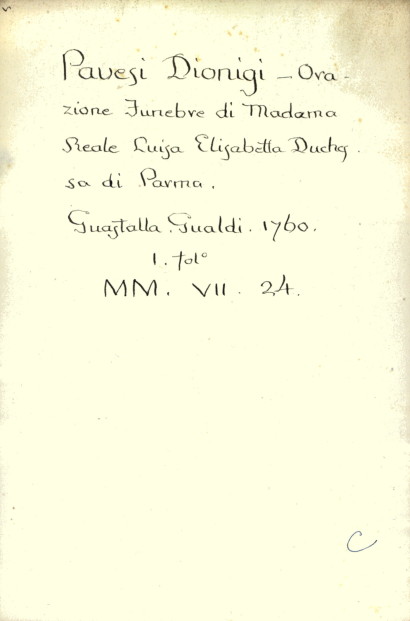 Pavesi Dionigi - Ora-
zione Funebre di Madama
Reale Luisa Elisabetta Duches
sa di Parma.
Guastalla. Gualdi. 1760.
1. folº
MM. VII. 24.
C